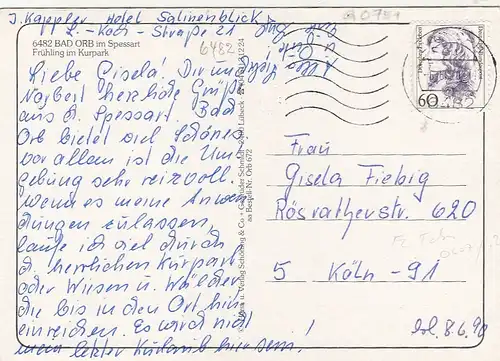 J. Kappler, Hotel Salinenblick
L.-Koch-Straße 21
6482
6482 BAD ORB im Spessart
Frühling im Kurpark
Liebe Gisela! Dir und
Norbert herzliche Grüße
aus d. Spessart. Bad
Orb bietet viel Schönes
vor allem ist die Um-
gebung sehr reizvoll.
wenn es meine Anwen-
dungen zulassen,
laufe ich viel durch
d. herrlichen Kurpark
oder Wiesen u. Wälder
die bis in den Ort hin-
einreichen. Es wird nicht
mein letzter Kurlaub hier sein.
Verlag Schöning & Co + Gebrüder Schmidt
Lübeck
Bestell-Nr. Orb 672
60
Frau
Gisela Fiebig
Rösratherstr. 620
5 Köln-91
8.6.90